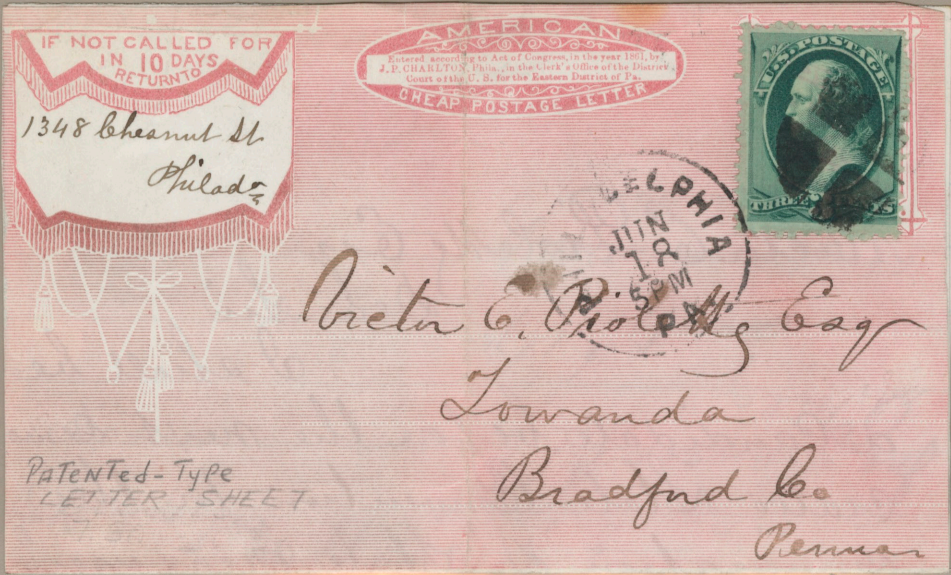 IF NOT CALLED FOR
IN 10 DAYS
RETURN TO
1348 Chesnut St
Philada
AMERICAN
Entered according to Act of Congress, in the year 1861, by
J. P. CHARLTON, Phila., in the Clerk's Office of the District
Court of the U. S. for the Eastern District of Pa.
CHEAP POSTAGE LETTER
U.S. POSTAGE
THREE
DELPHIA
JUN
18
5PM
PA.
Victor E. Piolette Esq
Towanda
Bradford Co
Penna
PATENTED-TYPE
LETTER SHEET